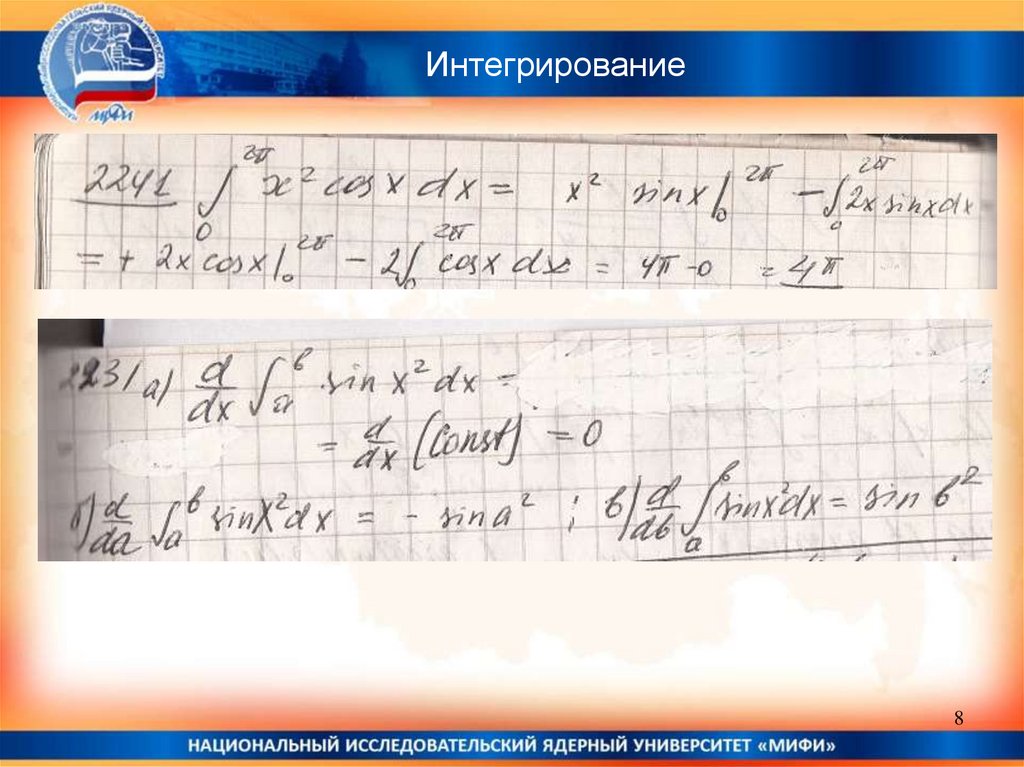 Интегрирование
2241 ∫₀^{2π} x² cos x dx = x² sin x |₀^{2π} − ∫₀^{2π} 2x sin x dx
= + 2x cos x |₀^{2π} − 2∫₀^{2π} cos x dx = 4π − 0 = 4π
2231 а) d/dx ∫ₐᵇ sin x² dx =
= d/dx (Const) = 0
б) d/da ∫ₐᵇ sin x² dx = − sin a² ; в) d/db ∫ₐᵇ sin x² dx = sin b²
8
НАЦИОНАЛЬНЫЙ ИССЛЕДОВАТЕЛЬСКИЙ ЯДЕРНЫЙ УНИВЕРСИТЕТ «МИФИ»